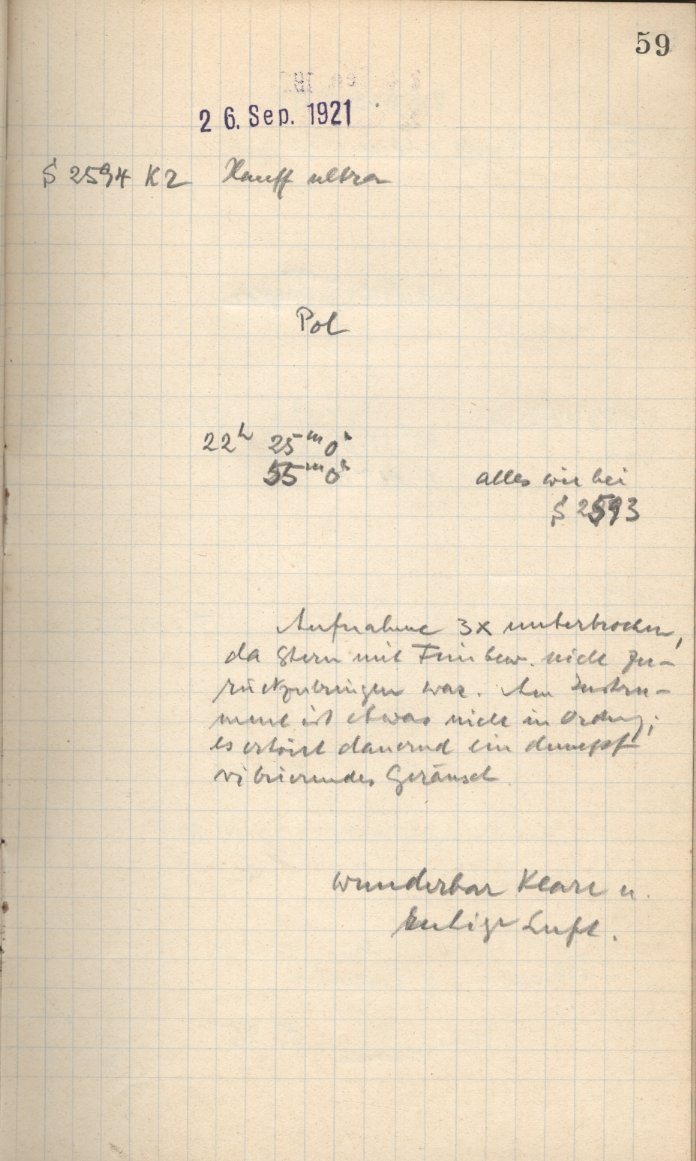 59
26. Sep. 1921
S 2594 K2 Hauff ultra
Pol
22h 25m 0s
55m 0s
alles wie bei
S 2593
Aufnahme 3x unterbrochen,
da Stern mit Feinbew. nicht zu-
rückzubringen war. Am Instru-
ment ist etwas nicht in Ordnung;
es ertönt dauernd ein dumpf
vibrierendes Geräusch.
wunderbar klare u.
ruhige Luft.